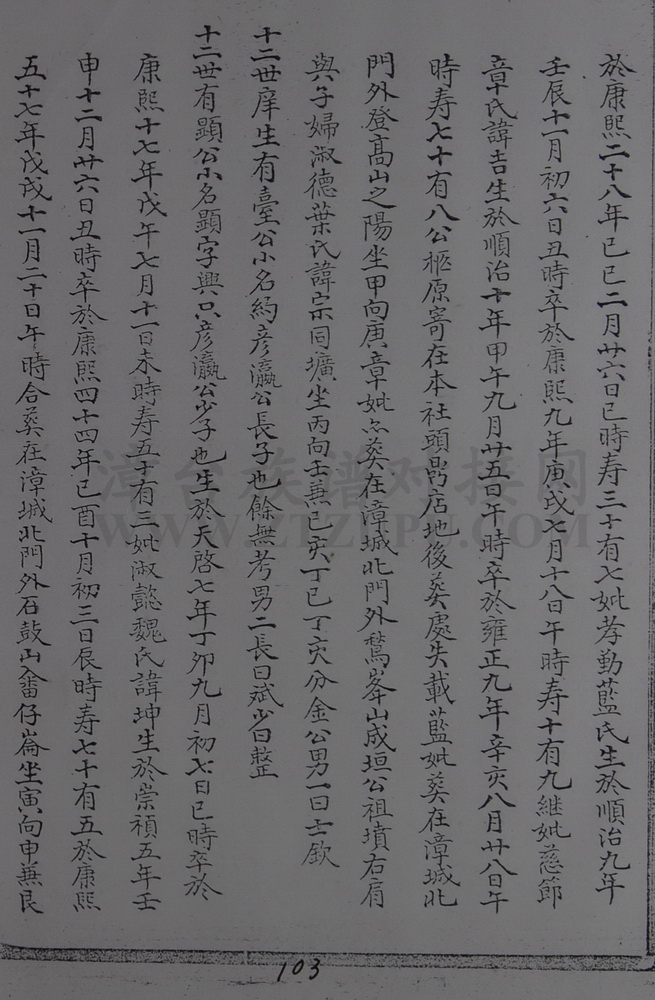 於康熙二十八年己巳二月廿六日巳時寿三十有七妣孝勤藍氏生於順治九年
壬辰十一月初六日丑時卒於康熙九年庚戌七月十八日午時寿十有九継妣慈節
章氏諱吉生於順治十年甲午九月廿五日午時卒於雍正九年辛亥八月廿八日午
時寿七十有八公柩原寄在本社頭墓店地後葬處失載藍妣葬在漳城北
門外登高山之陽坐甲向庚章妣亦葬在漳城北門外鵞峯山成垣公祖墳右肩
與子婦淑德葉氏諱宗同壙坐丙向壬兼巳亥丁巳丁亥分金公男一曰士欽
十二世庠生有臺公小名約彦瀛公長子也餘無考男二長曰斌少曰整
十二世有顕公小名顕字興只彦瀛公少子也生於天啓七年丁卯九月初七日巳時卒於
康熙十七年戊午七月十一日未時寿五十有三妣淑懿魏氏諱坤生於崇禎五年壬
申十二月廿六日丑時卒於康熙四十四年己酉十月初三日辰時寿七十有五於康熙
五十七年戊戌十一月二十日午時合葬在漳城北門外石鼓山畬仔崙坐寅向申兼艮
103
漳台族谱对接网
WWW.ZTZUPU.COM